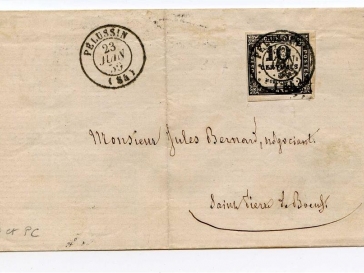 PELUSSIN
23
JUIN
59
(84)
10
CENTIMES
Monsieur Jules Bernard, négociant.
Saint Pierre de Boeuf.
et PC